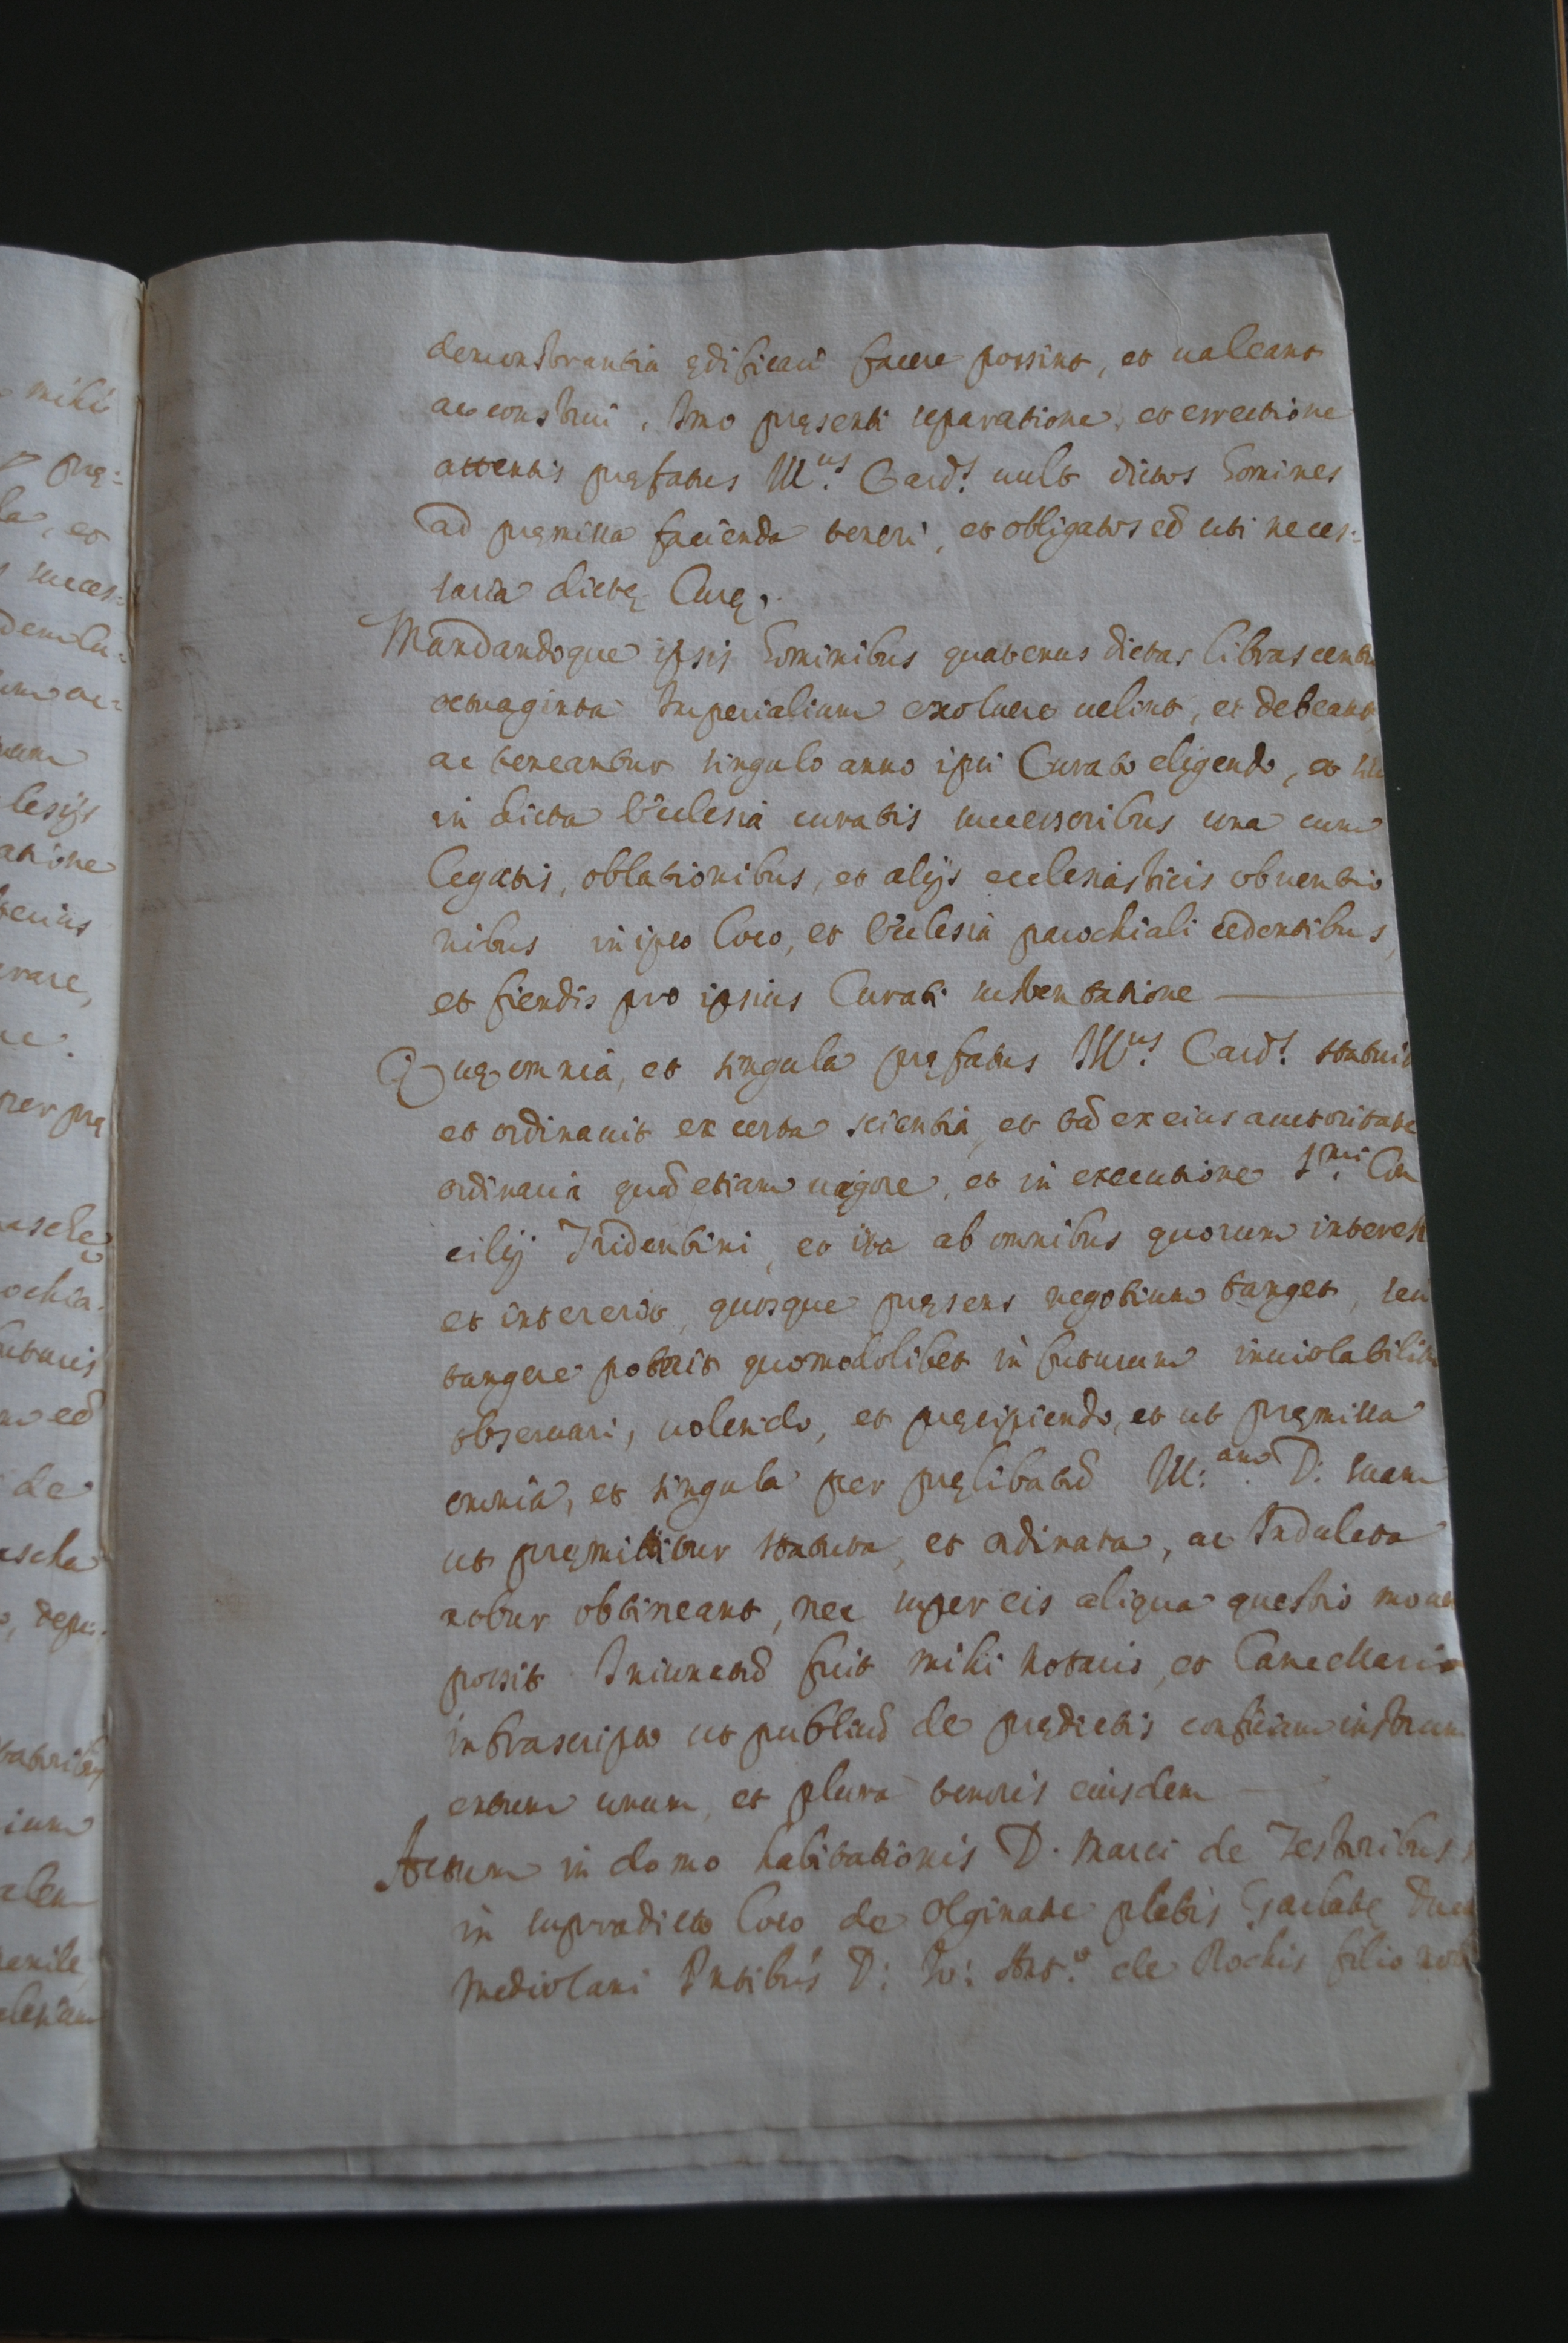 demonstrantia ędificari facere possint, et ualeant
ac construi, Imo pręsenti separatione, et errectione
attentis pręfatus Ill.us Card.s uult dictos homines
ad pręmissa facienda teneri, et obligatos eē uti neces:
saria dictę Curę.
Mandandoque ipsis hominibus quatenus dictas libras centu
octuaginta Imperialium exoluere uelint, et debeant
ac teneantur singulo anno ipsi Curato eligendo, et
in dicta Ecclesia curatis successoribus una cum
legatis, oblationibus, et alijs ecclesiasticis obuentio
nibus in ipso loco, et Ecclesia parochiali cedentibus,
et fiendis pro ipsius Curati sustentatione
Quę omnia, et singula pręfatus Ill.us Card.s statuit
et ordinauit ex certa scientia, et tā ex eius auctoritate
ordinaria quā etiam uigore, et in executione S.mi Con
cilij Tridentini, et ita ab omnibus quorum interest
et intererit, quosque pręsens negotium tanget, seu
tangere poterit quomodolibet in futurum inuiolabilit
obseruari, uolendo, et pręcipiendo, et ut pręmissa
omnia, et singula per pręlibatā Ill:am D: suam
ut pręmittitur statuta, et ordinata, ac Indulcta
robur obtineant, nec super eis aliqua questio moue
possit Iniunctū fuit mihi notario, et Cancellario
infrascripto ut publicū de prędictis conficiam instrum
entum unum, et plura tenoris eiusdem
Actum in domo habitationis D. Marci de Testoribus s
in supradicto loco de Olginate plebis Garlate Duca
Mediolani Pn̄tibus D: Io: Ant.o de Rochis filio
mihi
prę:
la, et
succes:
lesijs
atione
rare,
per prę
ochia.
eē
de
ascha
, depu.